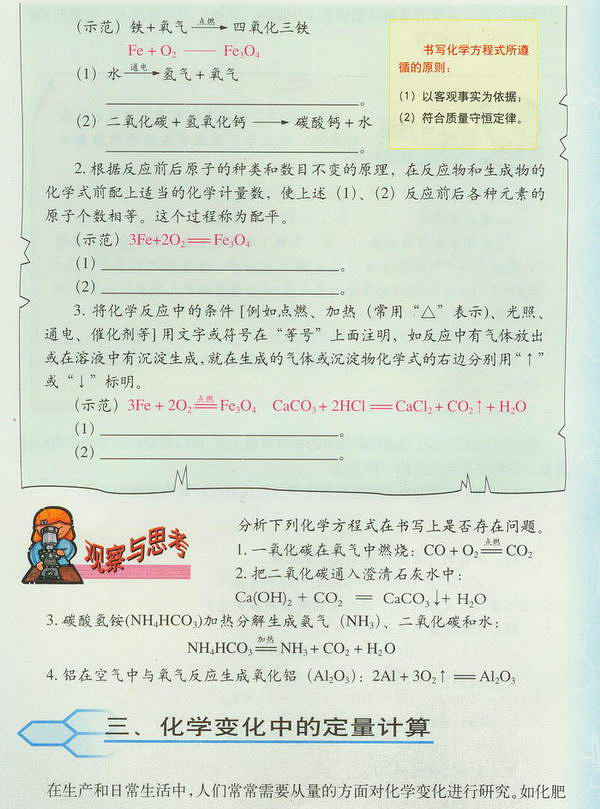 (示范) 铁+氧气 —点燃→ 四氧化三铁
Fe + O₂ —— Fe₃O₄
(1) 水 —通电→ 氢气+氧气
。
(2) 二氧化碳+氢氧化钙 ⟶ 碳酸钙+水
。
书写化学方程式所遵
循的原则:
(1) 以客观事实为依据;
(2) 符合质量守恒定律。
2. 根据反应前后原子的种类和数目不变的原理,在反应物和生成物的
化学式前配上适当的化学计量数,使上述 (1)、(2) 反应前后各种元素的
原子个数相等。这个过程称为配平。
(示范) 3Fe+2O₂══Fe₃O₄
(1) 。
(2) 。
3. 将化学反应中的条件 [例如点燃、加热 (常用“△”表示)、光照、
通电、催化剂等] 用文字或符号在“等号”上面注明,如反应中有气体放出
或在溶液中有沉淀生成,就在生成的气体或沉淀物化学式的右边分别用“↑”
或“↓”标明。
(示范) 3Fe + 2O₂ ═点燃═ Fe₃O₄ CaCO₃ + 2HCl ══ CaCl₂ + CO₂↑ + H₂O
(1) 。
(2) 。
观察与思考
分析下列化学方程式在书写上是否存在问题。
1. 一氧化碳在氧气中燃烧: CO + O₂ ═点燃═ CO₂
2. 把二氧化碳通入澄清石灰水中:
Ca(OH)₂ + CO₂ ══ CaCO₃↓+ H₂O
3. 碳酸氢铵(NH₄HCO₃)加热分解生成氨气 (NH₃)、二氧化碳和水:
NH₄HCO₃ ═加热═ NH₃ + CO₂ + H₂O
4. 铝在空气中与氧气反应生成氧化铝 (Al₂O₃): 2Al + 3O₂↑ ══ Al₂O₃
三、化学变化中的定量计算
在生产和日常生活中,人们常常需要从量的方面对化学变化进行研究。如化肥